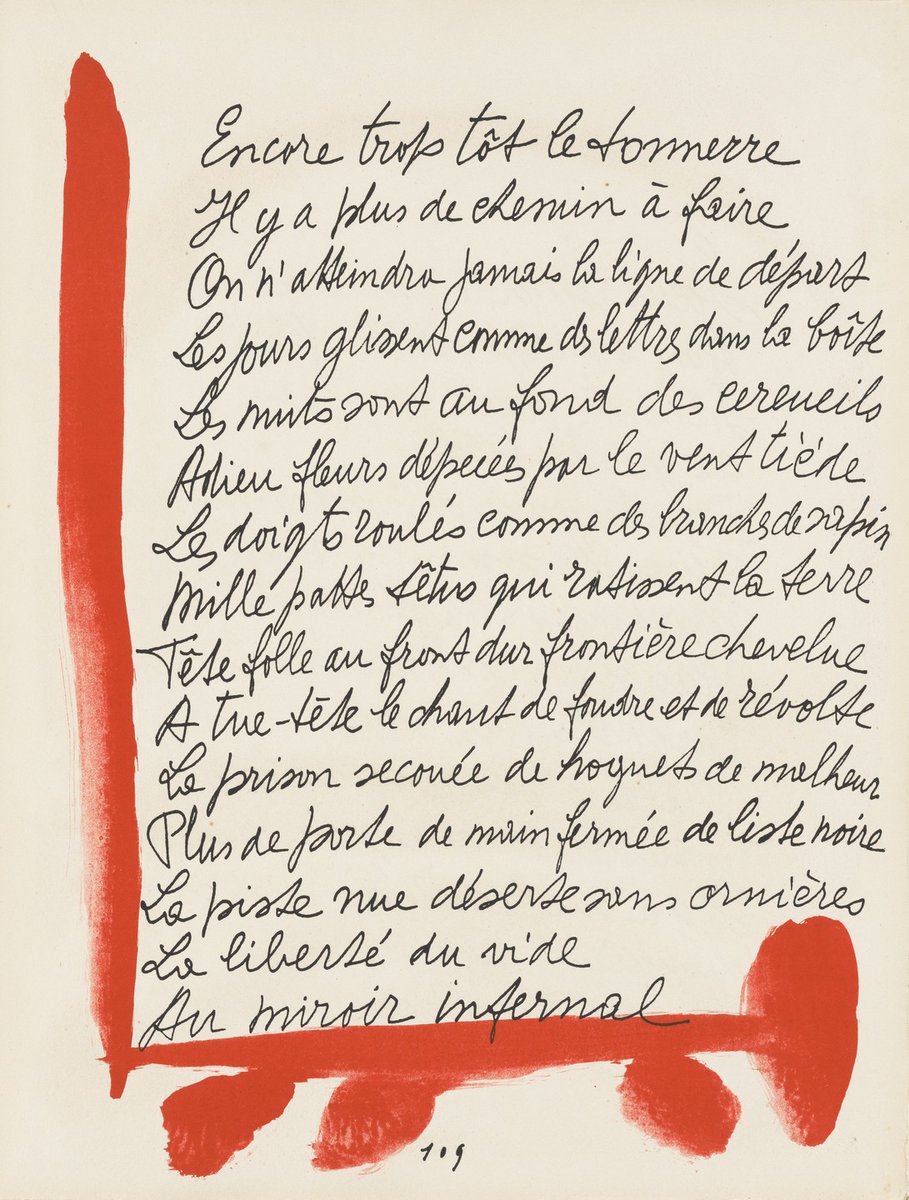 Encore trop tôt le tonnerre
Il y a plus de chemin à faire
On n'atteindra jamais la ligne de départ
Les jours glissent comme des lettres dans la boîte
Les nuits sont au fond des cercueils
Adieu fleurs dépecées par le vent tiède
Les doigts roulés comme des branches de sapin
Mille pattes têtus qui ratissent la terre
Tête folle au front dur frontière chevelue
A tue-tête le chant de foudre et de révolte
La prison secouée de hoquets de malheur
Plus de porte de main fermée de liste noire
La piste nue déserte sans ornières
La liberté du vide
Au miroir infernal
109